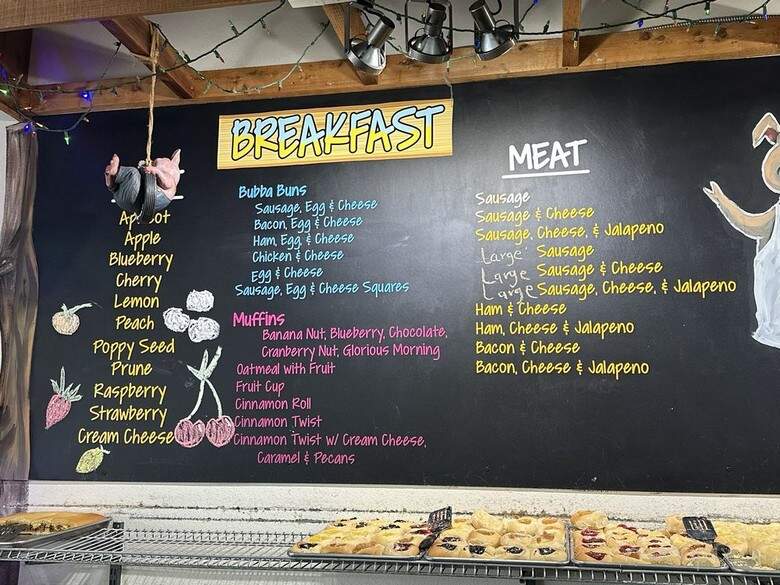 BREAKFAST
Apple
Blueberry
Cherry
Lemon
Peach
Poppy Seed
Prune
Raspberry
Strawberry
Cream Cheese
Bubba Buns
Sausage, Egg & Cheese
Bacon, Egg & Cheese
Ham, Egg, & Cheese
Chicken & Cheese
Egg & Cheese
Sausage, Egg & Cheese Squares
Muffins
Banana Nut, Blueberry, Chocolate,
Cranberry Nut, Glorious Morning
Oatmeal with Fruit
Fruit Cup
Cinnamon Roll
Cinnamon Twist
Cinnamon Twist w/ Cream Cheese,
Caramel & Pecans
MEAT
Sausage
Sausage & Cheese
Sausage, Cheese, & Jalapeno
Large Sausage
Large Sausage & Cheese
Large Sausage, Cheese, & Jalapeno
Ham & Cheese
Ham, Cheese & Jalapeno
Bacon & Cheese
Bacon, Cheese & Jalapeno